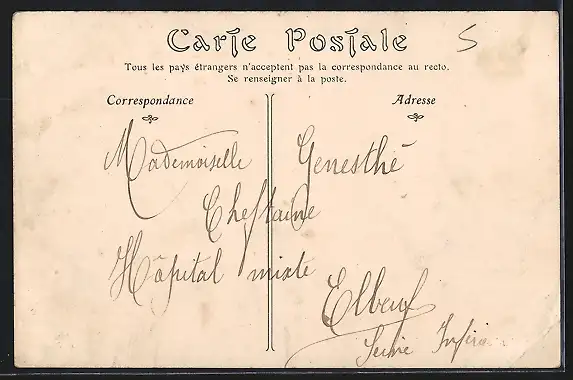 Carte Postale
5
Tous les pays étrangers n'acceptent pas la correspondance au recto.
Se renseigner à la poste.
Correspondance
Adresse
Mademoiselle Genesthé
Cheftaine
Hôpital mixte
Elbeuf
Seine Infre